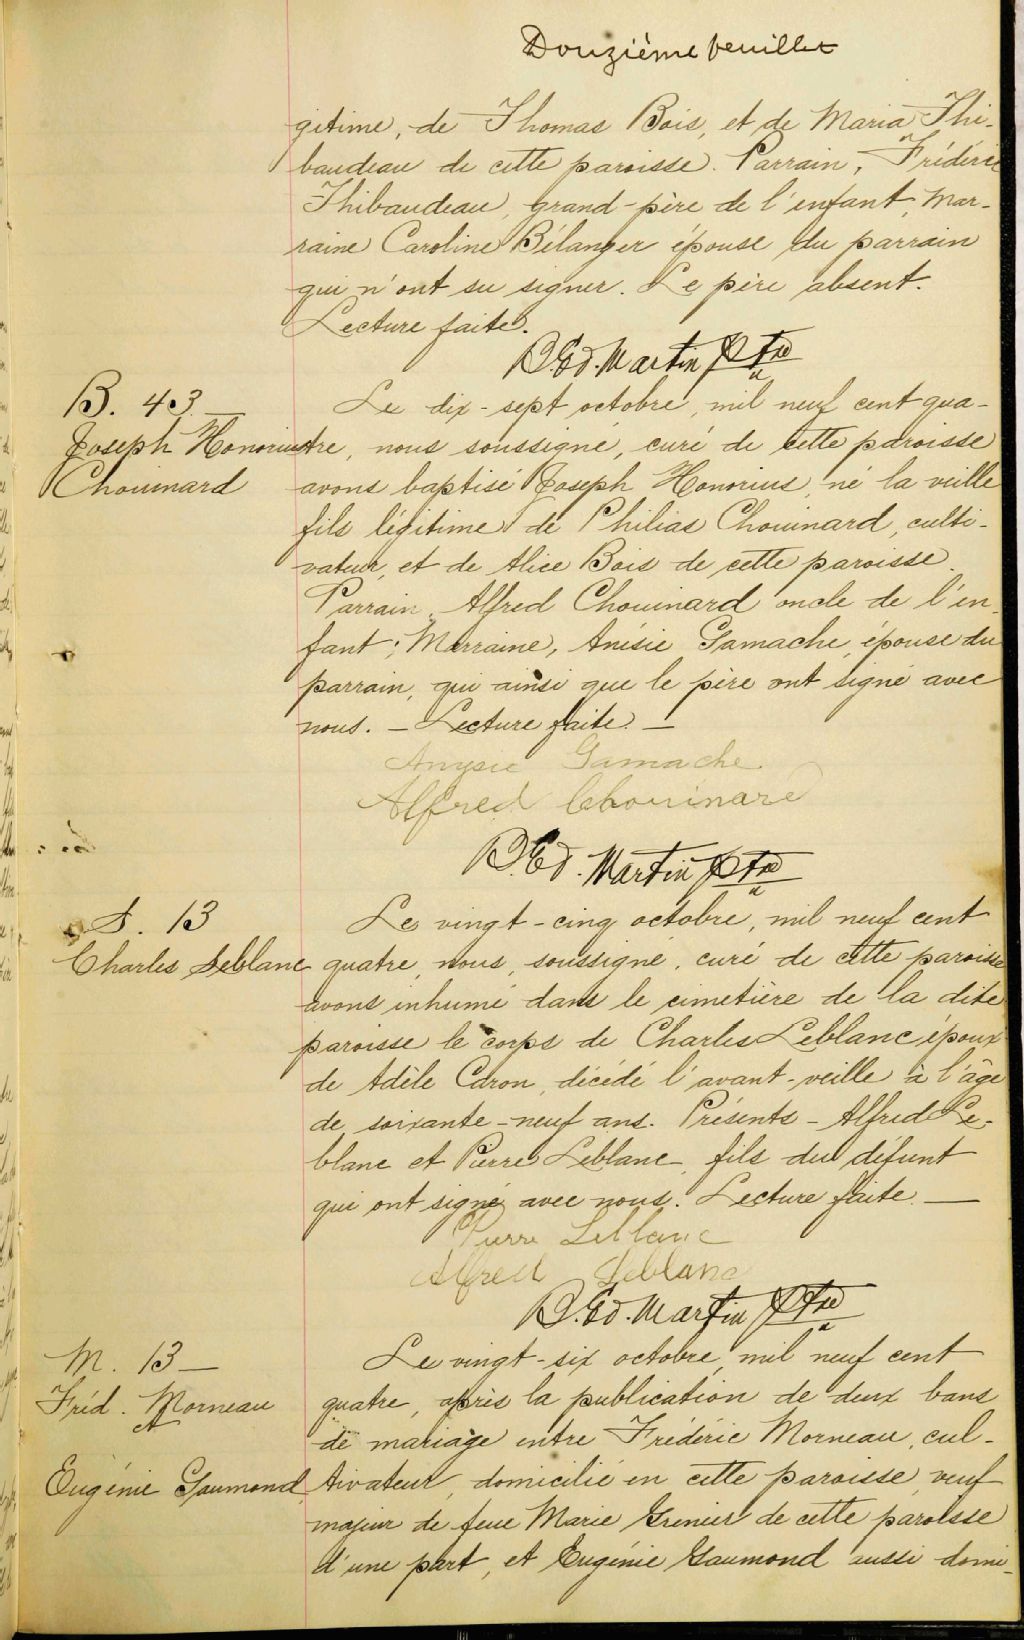 Douzième feuillet
gitime, de Thomas Bois, et de Maria Thi-
baudeau de cette paroisse. Parrain, Frédéric
Thibaudeau, grand-père de l'enfant, Mar-
raine Caroline Bélanger épouse du parrain
qui n'ont su signer. Le père absent.
Lecture faite.
B.Ed. Martin Ptre
B. 43
Joseph Honorius
Chouinard
Le dix-sept octobre, mil neuf cent qua-
tre, nous soussigné, curé de cette paroisse
avons baptisé Joseph Honorius, né la veille
fils légitime de Philias Chouinard, culti-
vateur, et de Alice Bois de cette paroisse.
Parrain, Alfred Chouinard oncle de l'en-
fant; Marraine, Anésie Gamache, épouse du
parrain, qui ainsi que le père ont signé avec
nous. — Lecture faite. —
Anysie Gamache
Alfred Chouinard
B.Ed. Martin Ptre
S. 13
Charles Leblanc
Le vingt-cinq octobre, mil neuf cent
quatre, nous, soussigné, curé de cette paroisse
avons inhumé dans le cimetière de la dite
paroisse le corps de Charles Leblanc, époux
de Adèle Caron, décédé l'avant-veille à l'âge
de soixante-neuf ans. Présents — Alfred Le-
blanc et Pierre Leblanc, fils du défunt
qui ont signé avec nous. Lecture faite. —
Pierre Leblanc
Alfred Leblanc
B.Ed. Martin Ptre
M. 13 —
Fréd. Morneau
et
Eugénie Gaumond
Le vingt-six octobre, mil neuf cent
quatre, après la publication de deux bans
de mariage entre Frédéric Morneau, cul-
tivateur, domicilié en cette paroisse, veuf
majeur de feue Marie Grenier de cette paroisse
d'une part, et Eugénie Gaumond aussi domi-